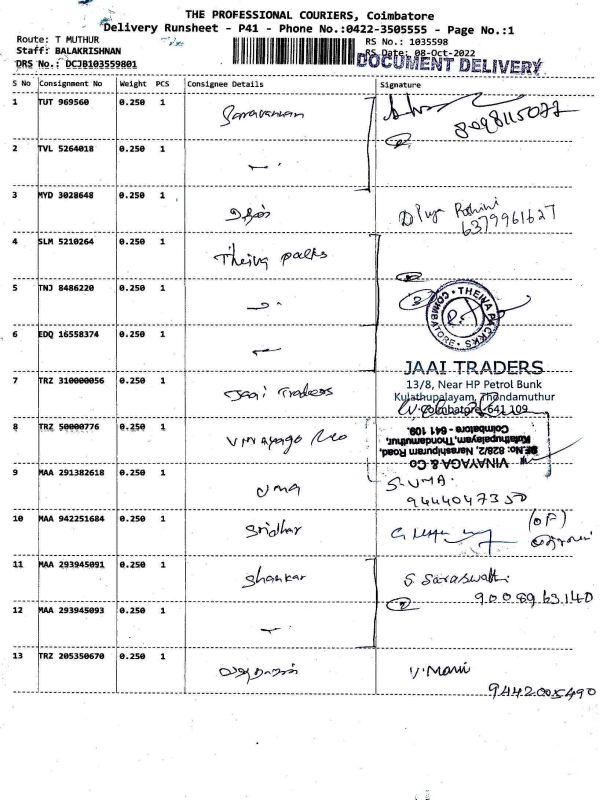 THE PROFESSIONAL COURIERS, Coimbatore
Delivery Runsheet - P41 - Phone No.:0422-3505555 - Page No.:1
Route: T MUTHUR
RS No.: 1035598
Staff: BALAKRISHNAN
RS Date: 08-Oct-2022
DRS No.: DCJB103559801
DOCUMENT DELIVERY
S No Consignment No Weight PCS Consignee Details Signature
1 TUT 969560 0.250 1 Saravanan
8098115077
2 TVL 5264018 0.250 1
3 MYD 3028648 0.250 1
6379961627
4 SLM 5210264 0.250 1 Theiva packs
5 TNJ 8486220 0.250 1
THEIWA PACKKS COIMBATORE
6 EDQ 16558374 0.250 1
JAAI TRADERS
13/8, Near HP Petrol Bunk
Kulathupalayam, Thondamuthur
Coimbatore-641 109
7 TRZ 310000056 0.250 1 Jaai Traders
8 TRZ 50000776 0.250 1
VINAYAGA & Co
SF.No: 828/2, Narashipuram Road,
Kulathupalayam, Thondamuthur,
Coimbatore - 641 109.
9 MAA 291382618 0.250 1 Uma S. UMA.
9444047350
10 MAA 942251684 0.250 1 Sridhar (OF)
11 MAA 293945091 0.250 1 Shankar S Saraswathi
9008963140
12 MAA 293945093 0.250 1
13 TRZ 205350670 0.250 1 V. Mani
9442005490